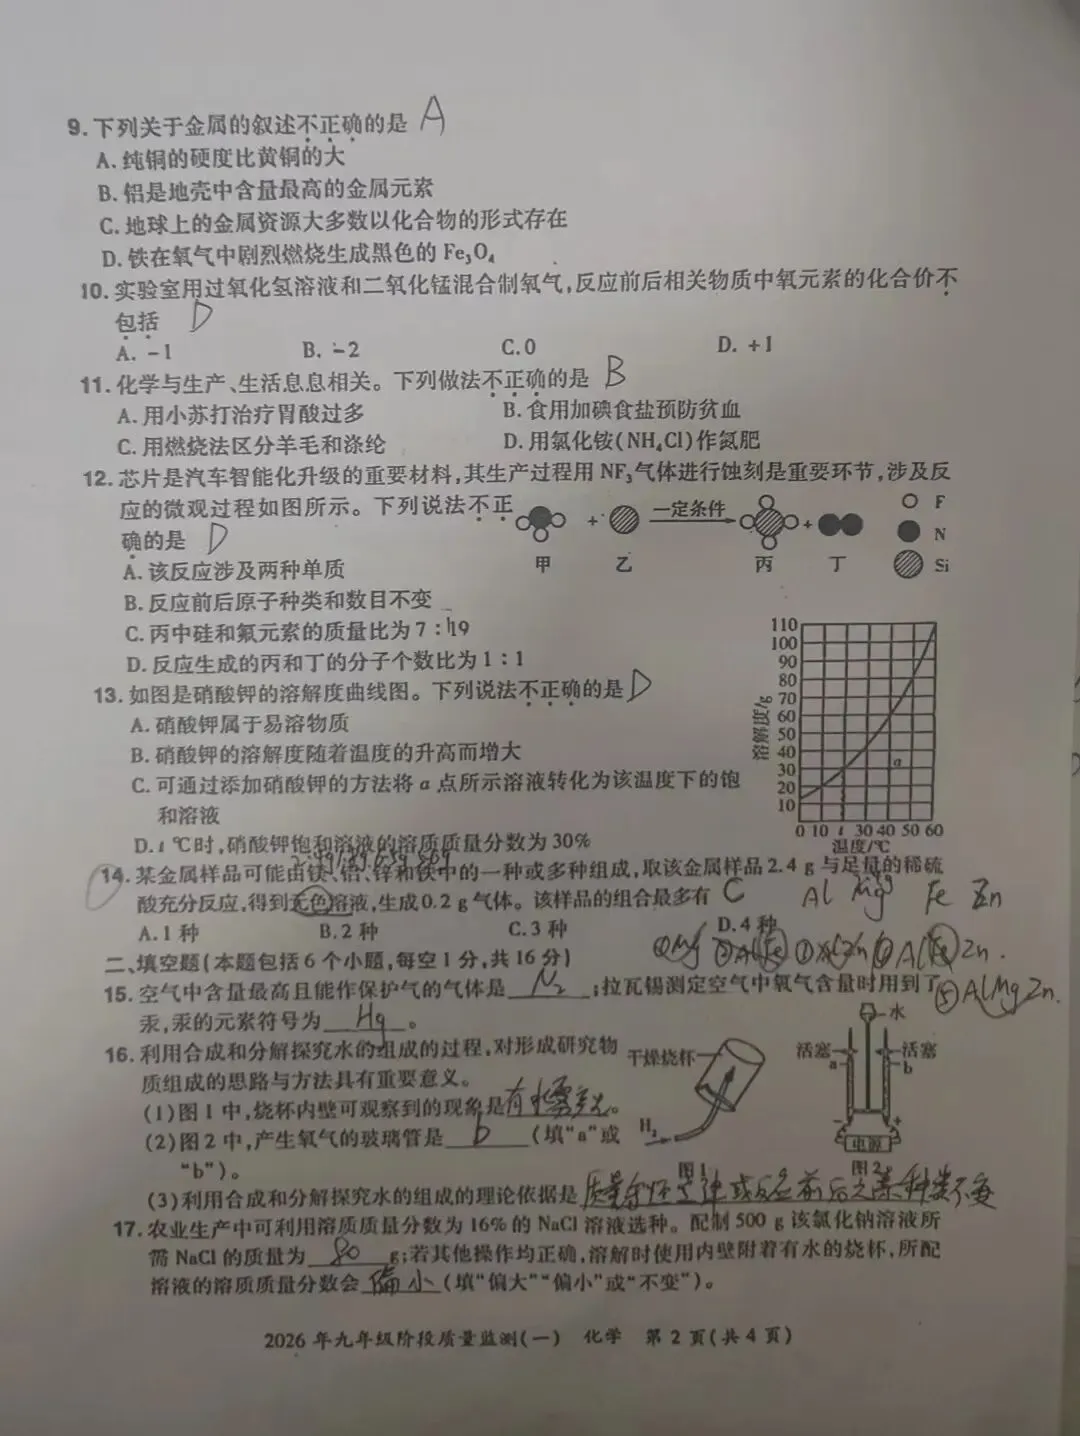 9.下列关于金属的叙述不正确的是 A
A.纯铜的硬度比黄铜的大
B.铝是地壳中含量最高的金属元素
C.地球上的金属资源大多数以化合物的形式存在
D.铁在氧气中剧烈燃烧生成黑色的 Fe₃O₄
10.实验室用过氧化氢溶液和二氧化锰混合制氧气,反应前后相关物质中氧元素的化合价不
包括 D
A. -1 B. -2 C. 0 D. +1
11.化学与生产、生活息息相关。下列做法不正确的是 B
A.用小苏打治疗胃酸过多 B.食用加碘食盐预防贫血
C.用燃烧法区分羊毛和涤纶 D.用氯化铵(NH₄Cl)作氮肥
12.芯片是汽车智能化升级的重要材料,其生产过程用 NF₃气体进行蚀刻是重要环节,涉及反
应的微观过程如图所示。下列说法不正
确的是 D
+ 一定条件 +
甲 乙 丙 丁
F
N
Si
A.该反应涉及两种单质
B.反应前后原子种类和数目不变
C.丙中硅和氟元素的质量比为 7:19
D.反应生成的丙和丁的分子个数比为 1:1
13.如图是硝酸钾的溶解度曲线图。下列说法不正确的是 D
A.硝酸钾属于易溶物质
B.硝酸钾的溶解度随着温度的升高而增大
C.可通过添加硝酸钾的方法将 a 点所示溶液转化为该温度下的饱
和溶液
D. t ℃时,硝酸钾饱和溶液的溶质质量分数为 30%
溶解度/g
110
100
90
80
70
60
50
40
30
20
10
a
0 10 t 30 40 50 60
温度/℃
14.某金属样品可能由镁、铝、锌和铁中的一种或多种组成,取该金属样品 2.4 g 与足量的稀硫
酸充分反应,得到无色溶液,生成 0.2 g 气体。该样品的组合最多有 C
Al Mg Fe Zn
A.1 种 B.2 种 C.3 种 D.4 种
二、填空题(本题包括 6 个小题,每空 1 分,共 16 分)
15.空气中含量最高且能作保护气的气体是 N₂ ;拉瓦锡测定空气中氧气含量时用到了
⑤AlMgZn.
汞,汞的元素符号为 Hg 。
16.利用合成和分解探究水的组成的过程,对形成研究物
质组成的思路与方法具有重要意义。
(1)图 1 中,烧杯内壁可观察到的现象是有水雾出现。
(2)图 2 中,产生氧气的玻璃管是 b (填“a”或
“b”)。
干燥烧杯
H₂
图 1
水
活塞 活塞
a b
- +
电源
图 2
(3)利用合成和分解探究水的组成的理论依据是 质量守恒定律或反应前后元素种类不变
17.农业生产中可利用溶质质量分数为 16% 的 NaCl 溶液选种。配制 500 g 该氯化钠溶液所
需 NaCl 的质量为 80 g;若其他操作均正确,溶解时使用内壁附着有水的烧杯,所配
溶液的溶质质量分数会 偏小 (填“偏大”“偏小”或“不变”)。
2026 年九年级阶段质量监测(一) 化学 第 2 页(共 4 页)